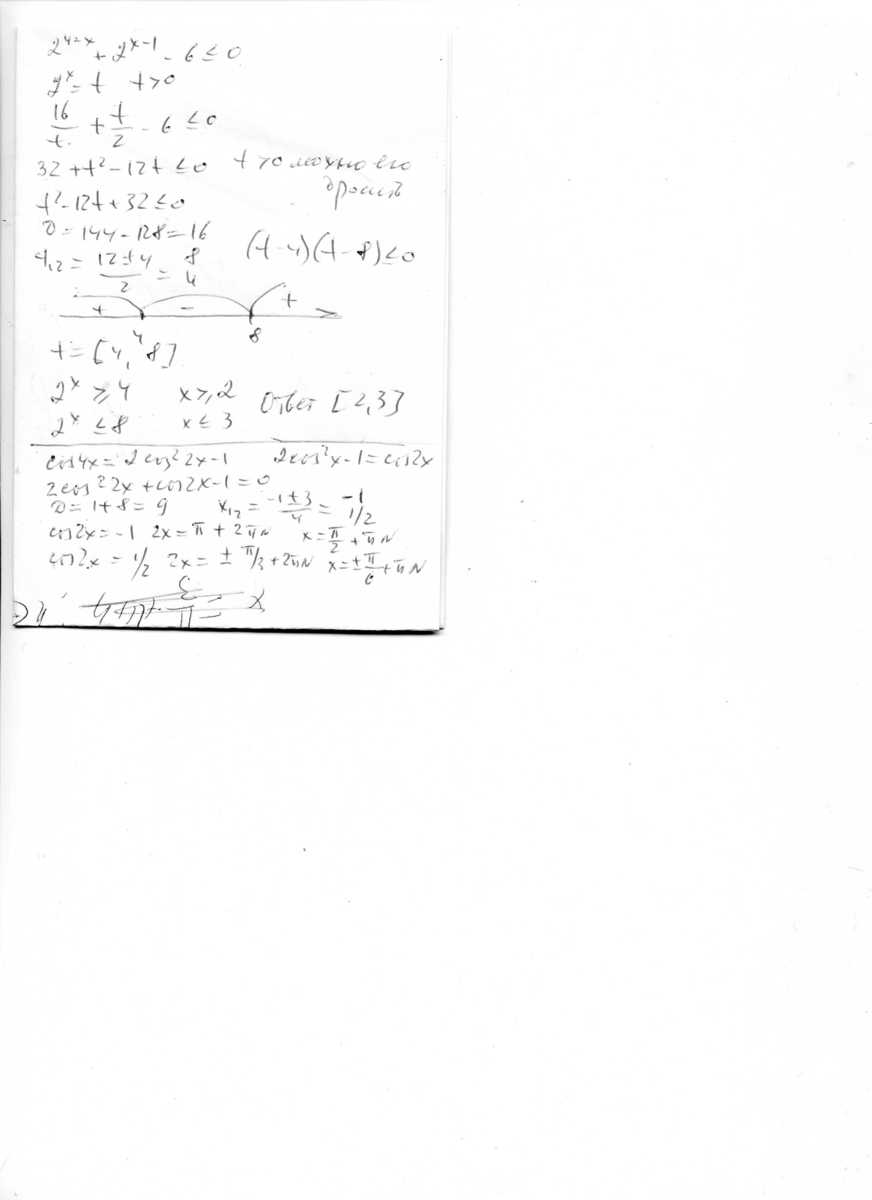 2^{4-x} + 2^{x-1} - 6 ≤ 0
2^x = t t>0
16/t + t/2 - 6 ≤ 0
32 + t² - 12t ≤ 0 t>0 можно его
t² - 12t + 32 ≤ 0
D = 144 - 128 = 16
t₁₂ = (12 ± 4)/2 = 8 4 (t-4)(t-8) ≤ 0
+ - +
4 8
t = [4, 8]
2^x ≥ 4 x ≥ 2 Ответ [2, 3]
2^x ≤ 8 x ≤ 3
cos4x = 2cos²2x - 1 2cos²x - 1 = cos2x
2cos²2x + cos2x - 1 = 0
D = 1 + 8 = 9 x₁₂ = (-1 ± 3)/4 = -1 1/2
cos2x = -1 2x = π + 2πN x = π/2 + πN
cos2x = 1/2 2x = ± π/3 + 2πN x = ± π/6 + πN